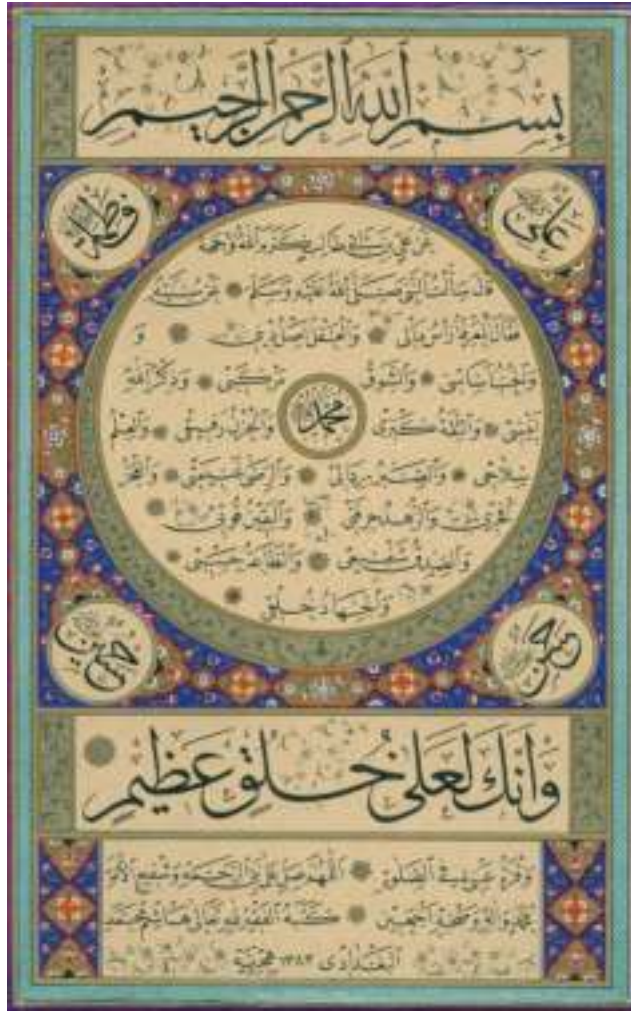 بِسْمِ ٱللَّهِ ٱلرَّحْمَنِ ٱلرَّحِيمِ
علي
فاطمة
عن علي بن ابي طالب كرم الله وجهه
قال سألت النبي صلى الله عليه وسلم عن سنته
فقال المعرفة رأس مالي والعقل اصل ديني و
والحب اساسي والشوق مركبي وذكر الله
محمد
انيسي والثقة كنزي والحزن رفيقي والعلم
سلاحي والصبر ردائي والرضى غنيمتي والفقر
فخري والزهد حرفتي واليقين قوتي
والصدق شفيعي والطاعة حسبي
والجهاد خلقي
حسن
حسين
وَإِنَّكَ لَعَلَى خُلُقٍ عَظِيمٍ
وقرة عيني في الصلوة اللهم صل على نبي الرحمة وشفيع الأمة
محمد وآله وصحبه اجمعين كتبه الفقير لله تعالى هاشم محمد
البغدادي ١٣٨٣ هجرية